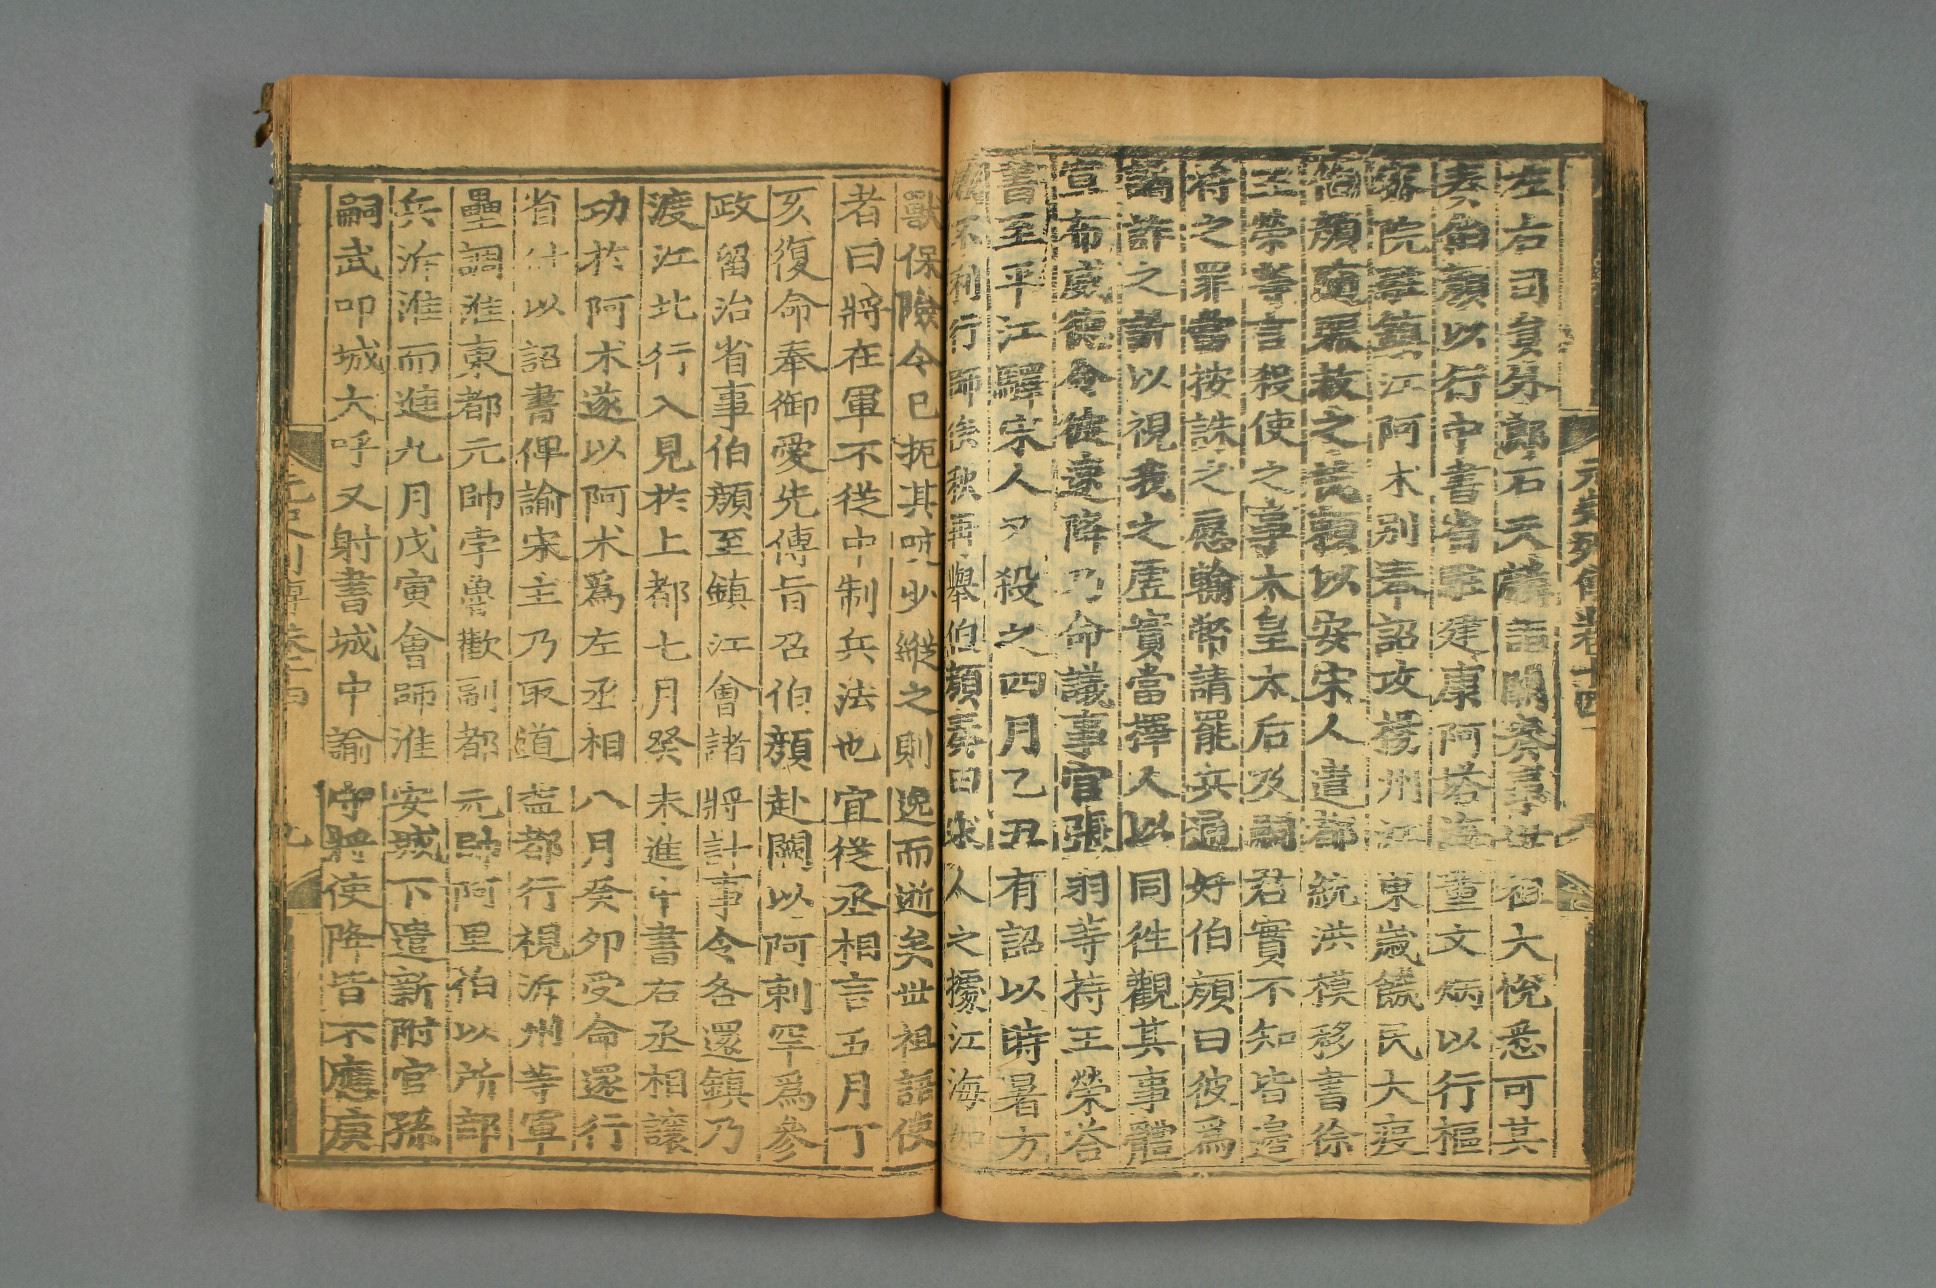 元史列傳卷十四
左右司員外郎石天麟詣闕奏事世祖大悅悉可其
奏伯顏以行中書省駐建康阿塔海董文炳以行樞
密院駐鎮江阿术別奉詔攻揚州江東歲饑民大疫
伯顏隨賑救之民賴以安宋人遣都統洪模移書徐
王榮等言殺使之事太皇太后及嗣君實不知皆邊
將之罪當按誅之愿輸幣請罷兵通好伯顏曰彼爲
譎詐之計以視我之虛實當擇人以同徃觀其事體
宣布威德令彼速降乃命議事官張羽等持王榮荅
書至平江驛宋人又殺之四月乙丑有詔以時暑方
不利行師俟秋再舉伯顏奏曰宋人之據江海如
獸保險今已扼其吭少縱之則逸而逝矣世祖語使
者曰將在軍不從中制兵法也宜從丞相言五月丁
亥復命奉御愛先傳旨召伯顏赴闕以阿剌罕爲參
政留治省事伯顏至鎮江會諸將計事令各還鎮乃
渡江北行入見於上都七月癸未進中書右丞相讓
功於阿术遂以阿术爲左丞相八月癸卯受命還行
省付以詔書俾諭宋主乃取道益都行視沂州等軍
壘調淮東都元帥孛魯歡副都元帥阿里伯以所部
兵沂淮而進九月戊寅會師淮安城下遣新附官孫
嗣武叩城大呼又射書城中諭守將使降皆不應庚
元史列傳卷十四 九